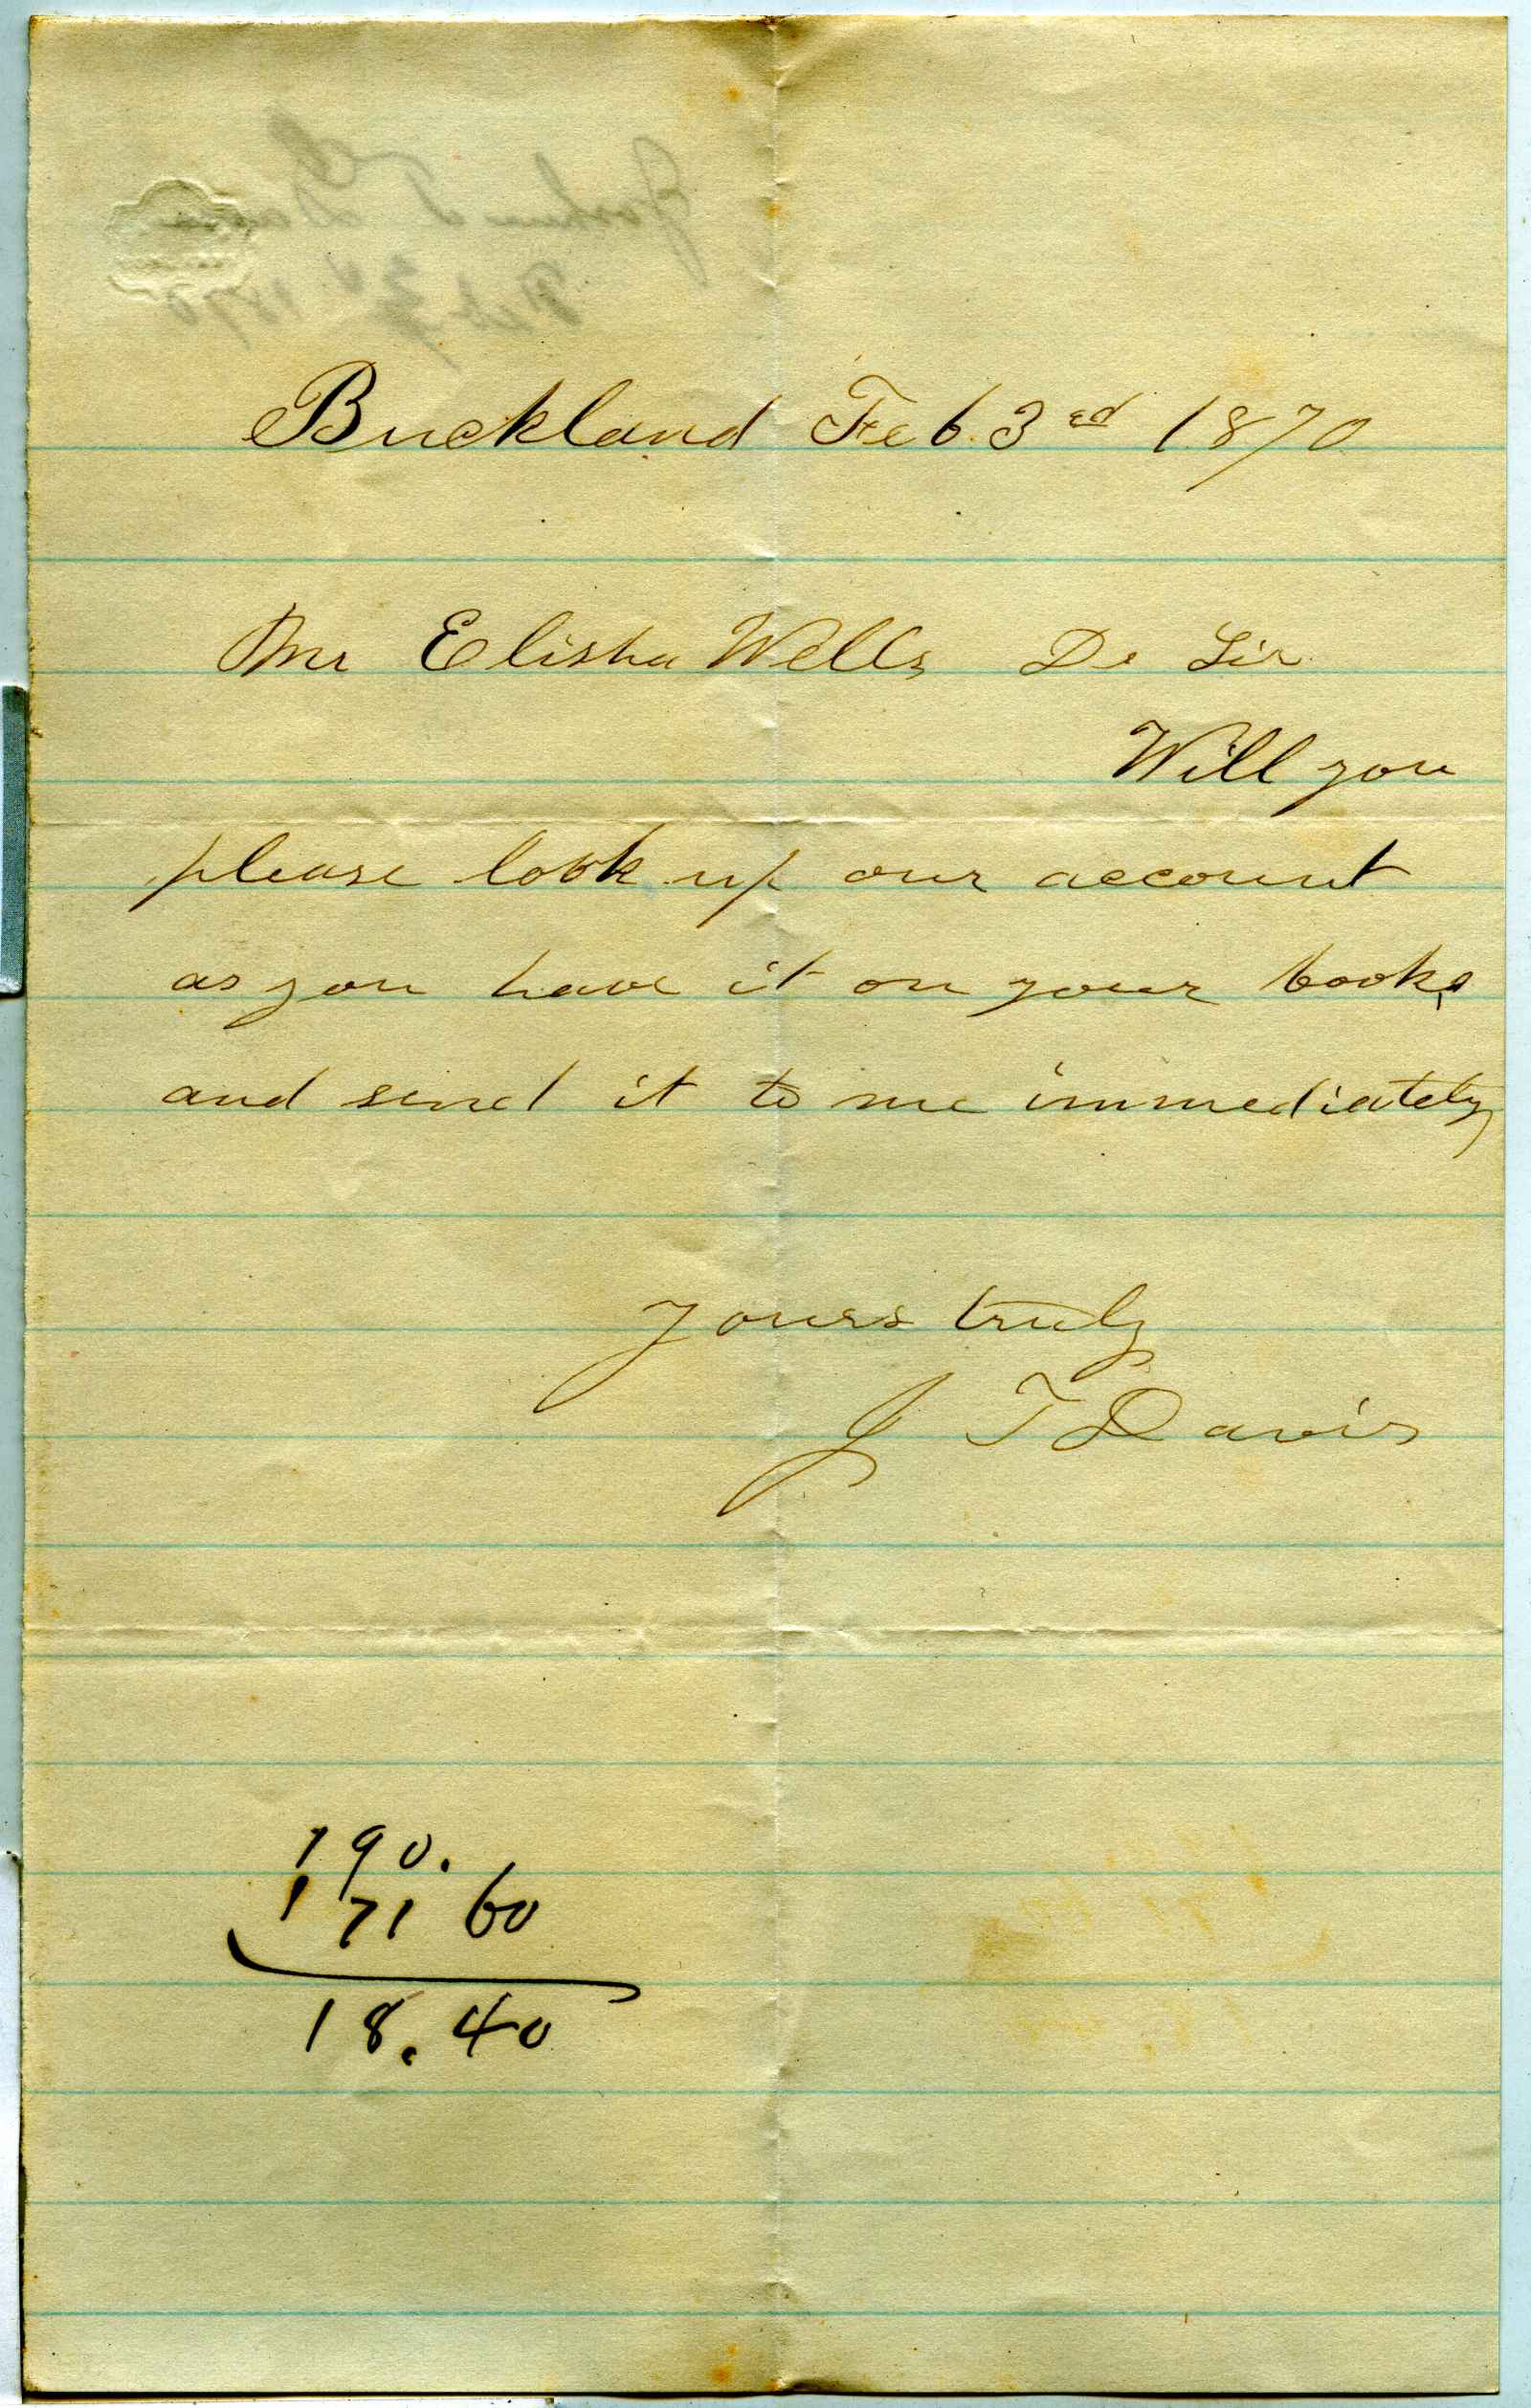 Buckland Feb. 3ed 1870
Mr Elisha Wells De Sir
Will you
please look up our account
as you have it on your books
and send it to me immediately
yours truly
J T Davis
190.
171 60
18.40